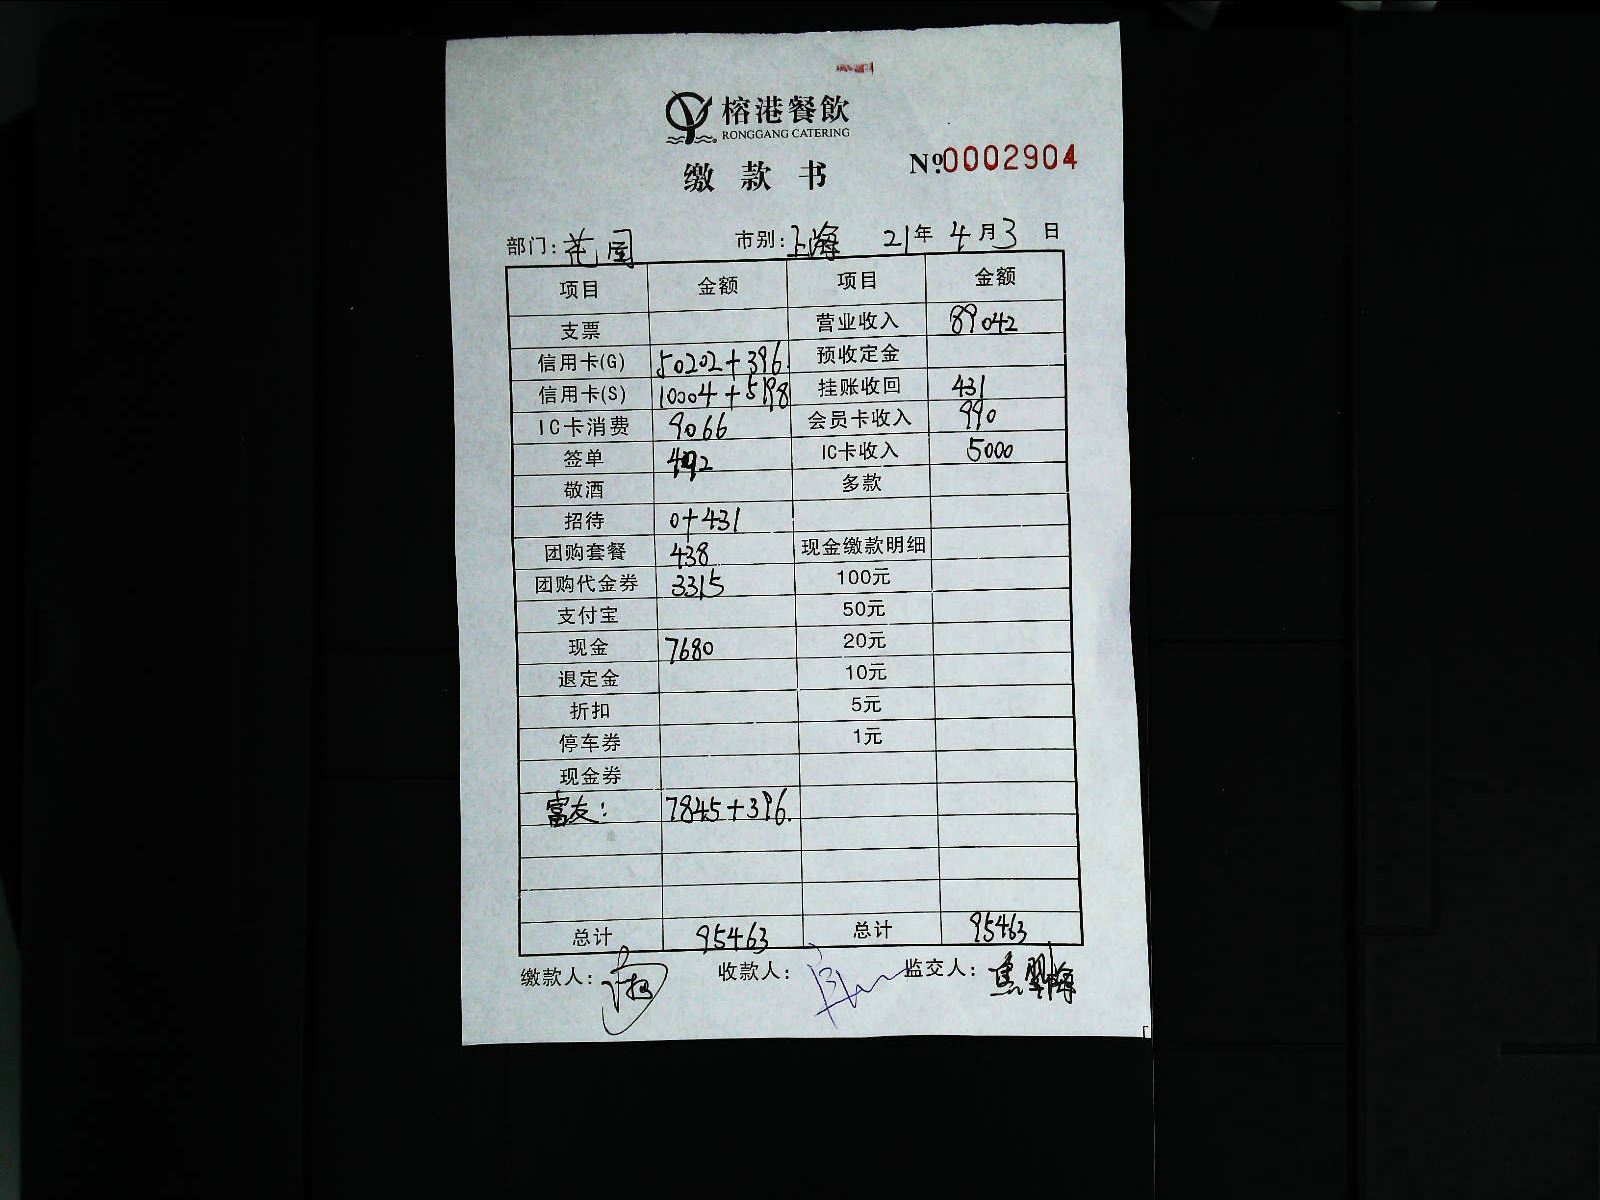 榕港餐飲
RONGGANG CATERING
缴款书 Nº:0002904
部门:花园 市别:上海 21年4月3日
项目 金额 项目 金额
支票 营业收入 89042
信用卡(G) 50202+396. 预收定金
信用卡(S) 10004+5198 挂账收回 431
IC卡消费 9066 会员卡收入 990
签单 492 IC卡收入 5000
敬酒 多款
招待 0+431
团购套餐 438 现金缴款明细
团购代金券 3315 100元
支付宝 50元
现金 7680 20元
退定金 10元
折扣 5元
停车券 1元
现金券
富友: 7845+396.
总计 95463 总计 95463
缴款人: 收款人: 监交人: